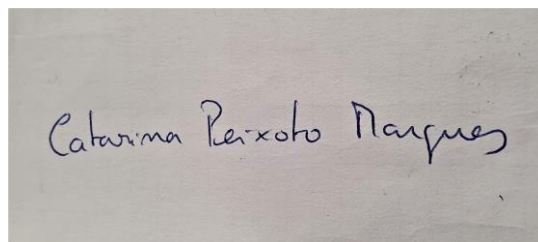 Catarina Peixoto Marques